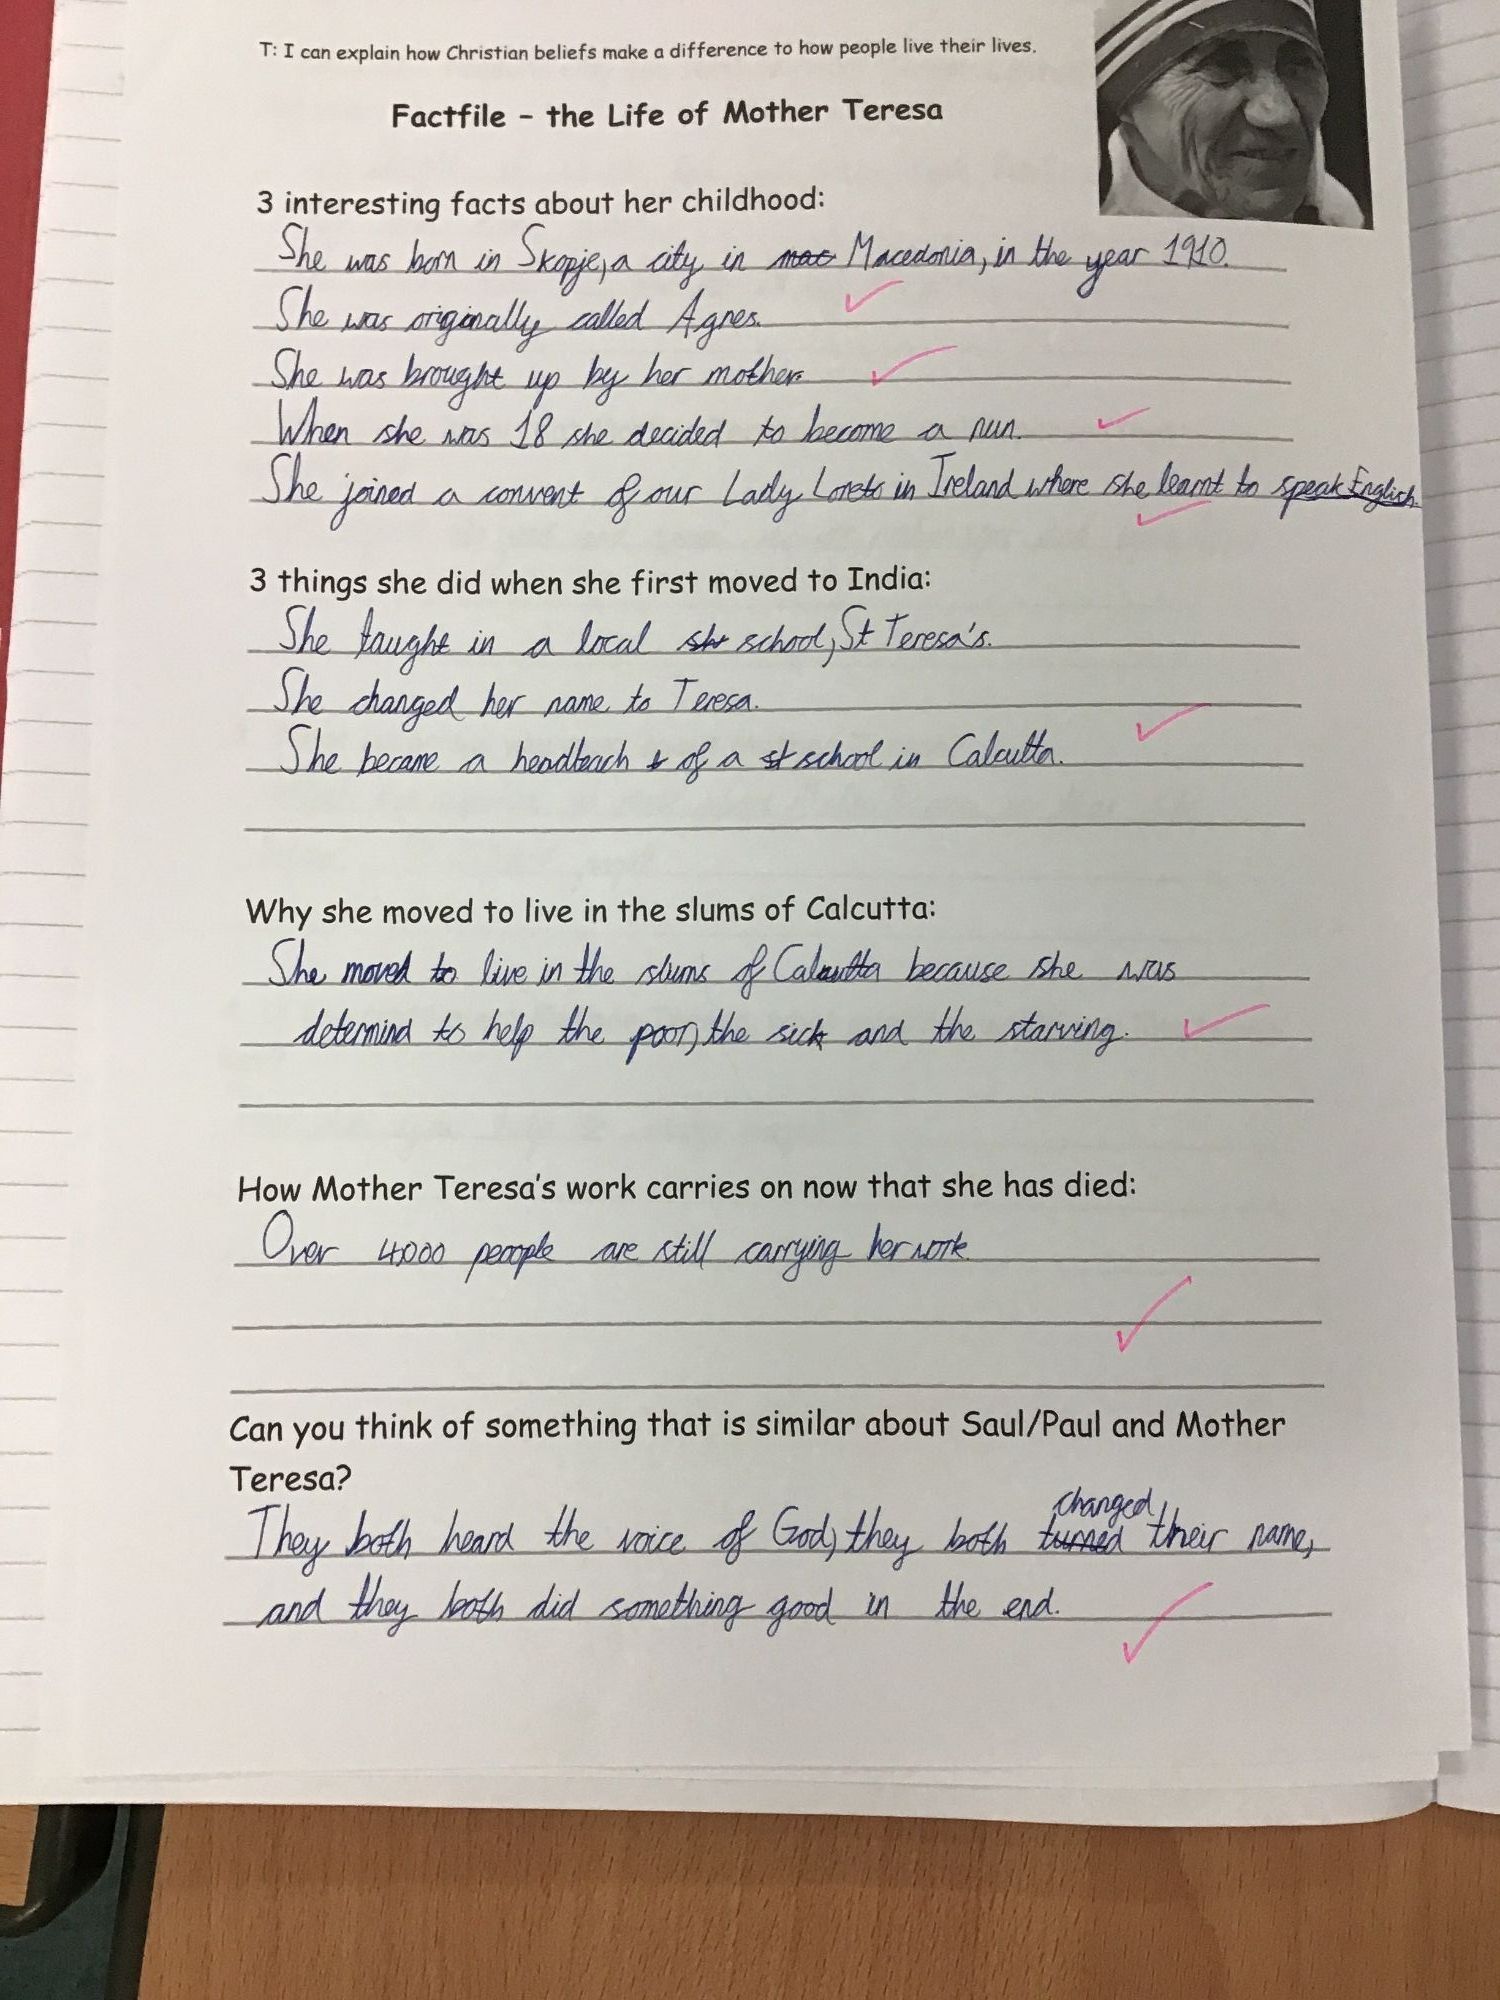 T: I can explain how Christian beliefs make a difference to how people live their lives.
Factfile - the Life of Mother Teresa
3 interesting facts about her childhood:
She was born in Skopje, a city in mac Macedonia, in the year 1910.
She was originally called Agnes.
She was brought up by her mother.
When she was 18 she decided to become a nun.
She joined a convent of our Lady Loreto in Ireland where she learnt to speak English.
3 things she did when she first moved to India:
She taught in a local sh school, St Teresa's.
She changed her name to Teresa.
She became a headteach of a st school in Calcutta.
Why she moved to live in the slums of Calcutta:
She moved to live in the slums of Calcutta because she was
determind to help the poor, the sick and the starving.
How Mother Teresa's work carries on now that she has died:
Over 4,000 peaople are still carrying her work.
Can you think of something that is similar about Saul/Paul and Mother
Teresa?
changed
They both heard the voice of God, they both turned their name,
and they both did something good in the end.